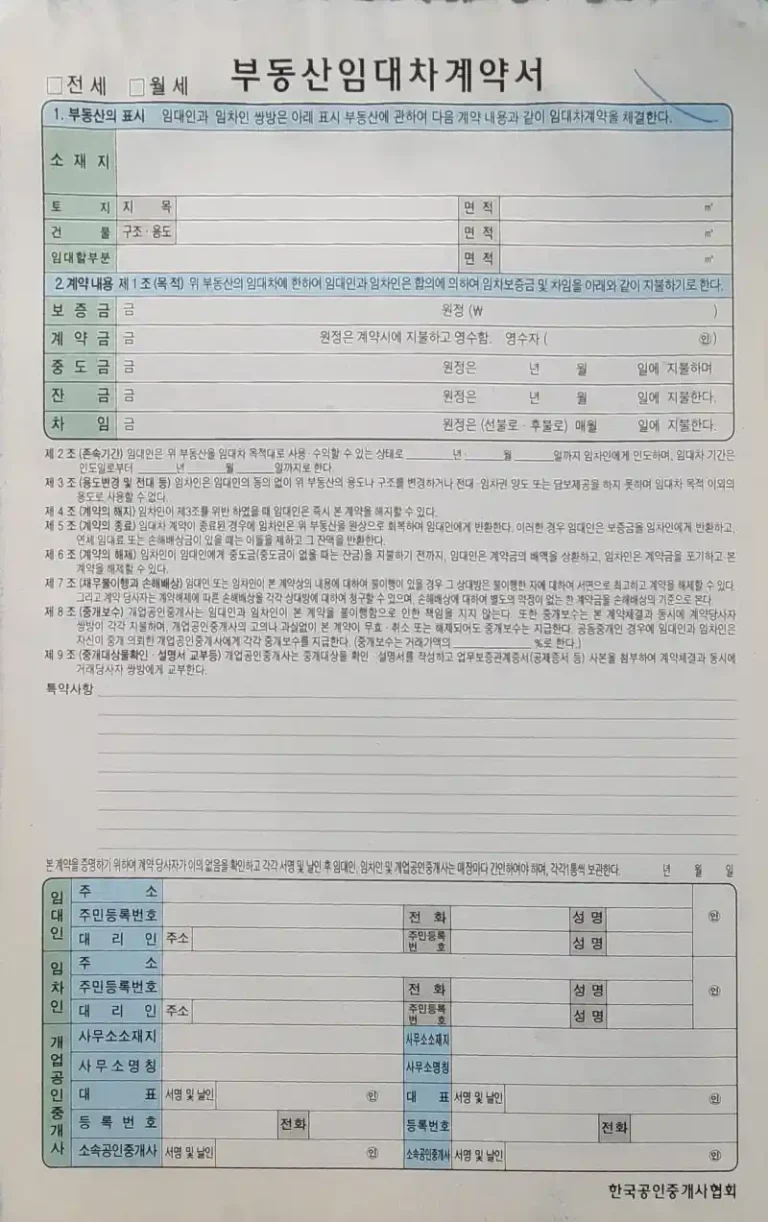 □전세 □월세 부동산임대차계약서
1. 부동산의 표시 임대인과 임차인 쌍방은 아래 표시 부동산에 관하여 다음 계약 내용과 같이 임대차계약을 체결한다.
소재지
토 지 지 목 면적 ㎡
건 물 구조·용도 면적 ㎡
임대할부분 면적 ㎡
2.계약내용 제1조(목적) 위 부동산의 임대차에 한하여 임대인과 임차인은 합의에 의하여 임차보증금 및 차임을 아래와 같이 지불하기로 한다.
보증금 금 원정 (₩ )
계약금 금 원정은 계약시에 지불하고 영수함. 영수자 ( ㊞)
중도금 금 원정은 년 월 일에 지불하며
잔 금 금 원정은 년 월 일에 지불한다.
차 임 금 원정은 (선불로·후불로) 매월 일에 지불한다.
제2조 (존속기간) 임대인은 위 부동산을 임대차 목적대로 사용·수익할 수 있는 상태로 ______년 ______월 ______일까지 임차인에게 인도하며, 임대차 기간은
인도일로부터 ______년 ______월 ______일까지로 한다.
제3조 (용도변경 및 전대 등) 임차인은 임대인의 동의 없이 위 부동산의 용도나 구조를 변경하거나 전대·임차권 양도 또는 담보제공을 하지 못하며 임대차 목적 이외의
용도로 사용할 수 없다.
제4조 (계약의 해지) 임차인이 제3조를 위반하였을 때 임대인은 즉시 본 계약을 해지할 수 있다.
제5조 (계약의 종료) 임대차 계약이 종료된 경우에 임차인은 위 부동산을 원상으로 회복하여 임대인에게 반환한다. 이러한 경우 임대인은 보증금을 임차인에게 반환하고,
연체 임대료 또는 손해배상금이 있을 때는 이들을 제하고 그 잔액을 반환한다.
제6조 (계약의 해제) 임차인이 임대인에게 중도금(중도금이 없을 때는 잔금)을 지불하기 전까지, 임대인은 계약금의 배액을 상환하고, 임차인은 계약금을 포기하고 본
계약을 해제할 수 있다.
제7조 (채무불이행과 손해배상) 임대인 또는 임차인이 본 계약상의 내용에 대하여 불이행이 있을 경우 그 상대방은 불이행한 자에 대하여 서면으로 최고하고 계약을 해제할 수 있다.
그리고 계약 당사자는 계약해제에 따른 손해배상을 각각 상대방에 대하여 청구할 수 있으며, 손해배상에 대하여 별도의 약정이 없는 한 계약금을 손해배상의 기준으로 본다.
제8조 (중개보수) 개업공인중개사는 임대인과 임차인이 본 계약을 불이행함으로 인한 책임을 지지 않는다. 또한 중개보수는 본 계약체결과 동시에 계약당사자
쌍방이 각각 지불하며, 개업공인중개사의 고의나 과실없이 본 계약이 무효·취소 또는 해제되어도 중개보수는 지급한다. 공동중개인 경우에 임대인과 임차인은
자신이 중개 의뢰한 개업공인중개사에게 각각 중개보수를 지급한다. (중개보수는 거래가액의 ______%로 한다.)
제9조 (중개대상물확인·설명서 교부등) 개업공인중개사는 중개대상물 확인·설명서를 작성하고 업무보증관계증서(공제증서 등) 사본을 첨부하여 계약체결과 동시에
거래당사자 쌍방에게 교부한다.
특약사항
본 계약을 증명하기 위하여 계약 당사자가 이의 없음을 확인하고 각각 서명 및 날인 후 임대인, 임차인 및 개업공인중개사는 매장마다 간인하여야 하며, 각각 1통씩 보관한다. 년 월 일
임대인
주 소 ㊞
주민등록번호 전화 성명
대 리 인 주소 주민등록번호 성명
임차인
주 소 ㊞
주민등록번호 전화 성명
대 리 인 주소 주민등록번호 성명
개업공인중개사
사무소소재지 사무소소재지
사무소명칭 사무소명칭
대 표 서명 및 날인 ㊞ 대 표 서명 및 날인 ㊞
등록번호 전화 등록번호 전화
소속공인중개사 서명 및 날인 ㊞ 소속공인중개사 서명 및 날인 ㊞
한국공인중개사협회